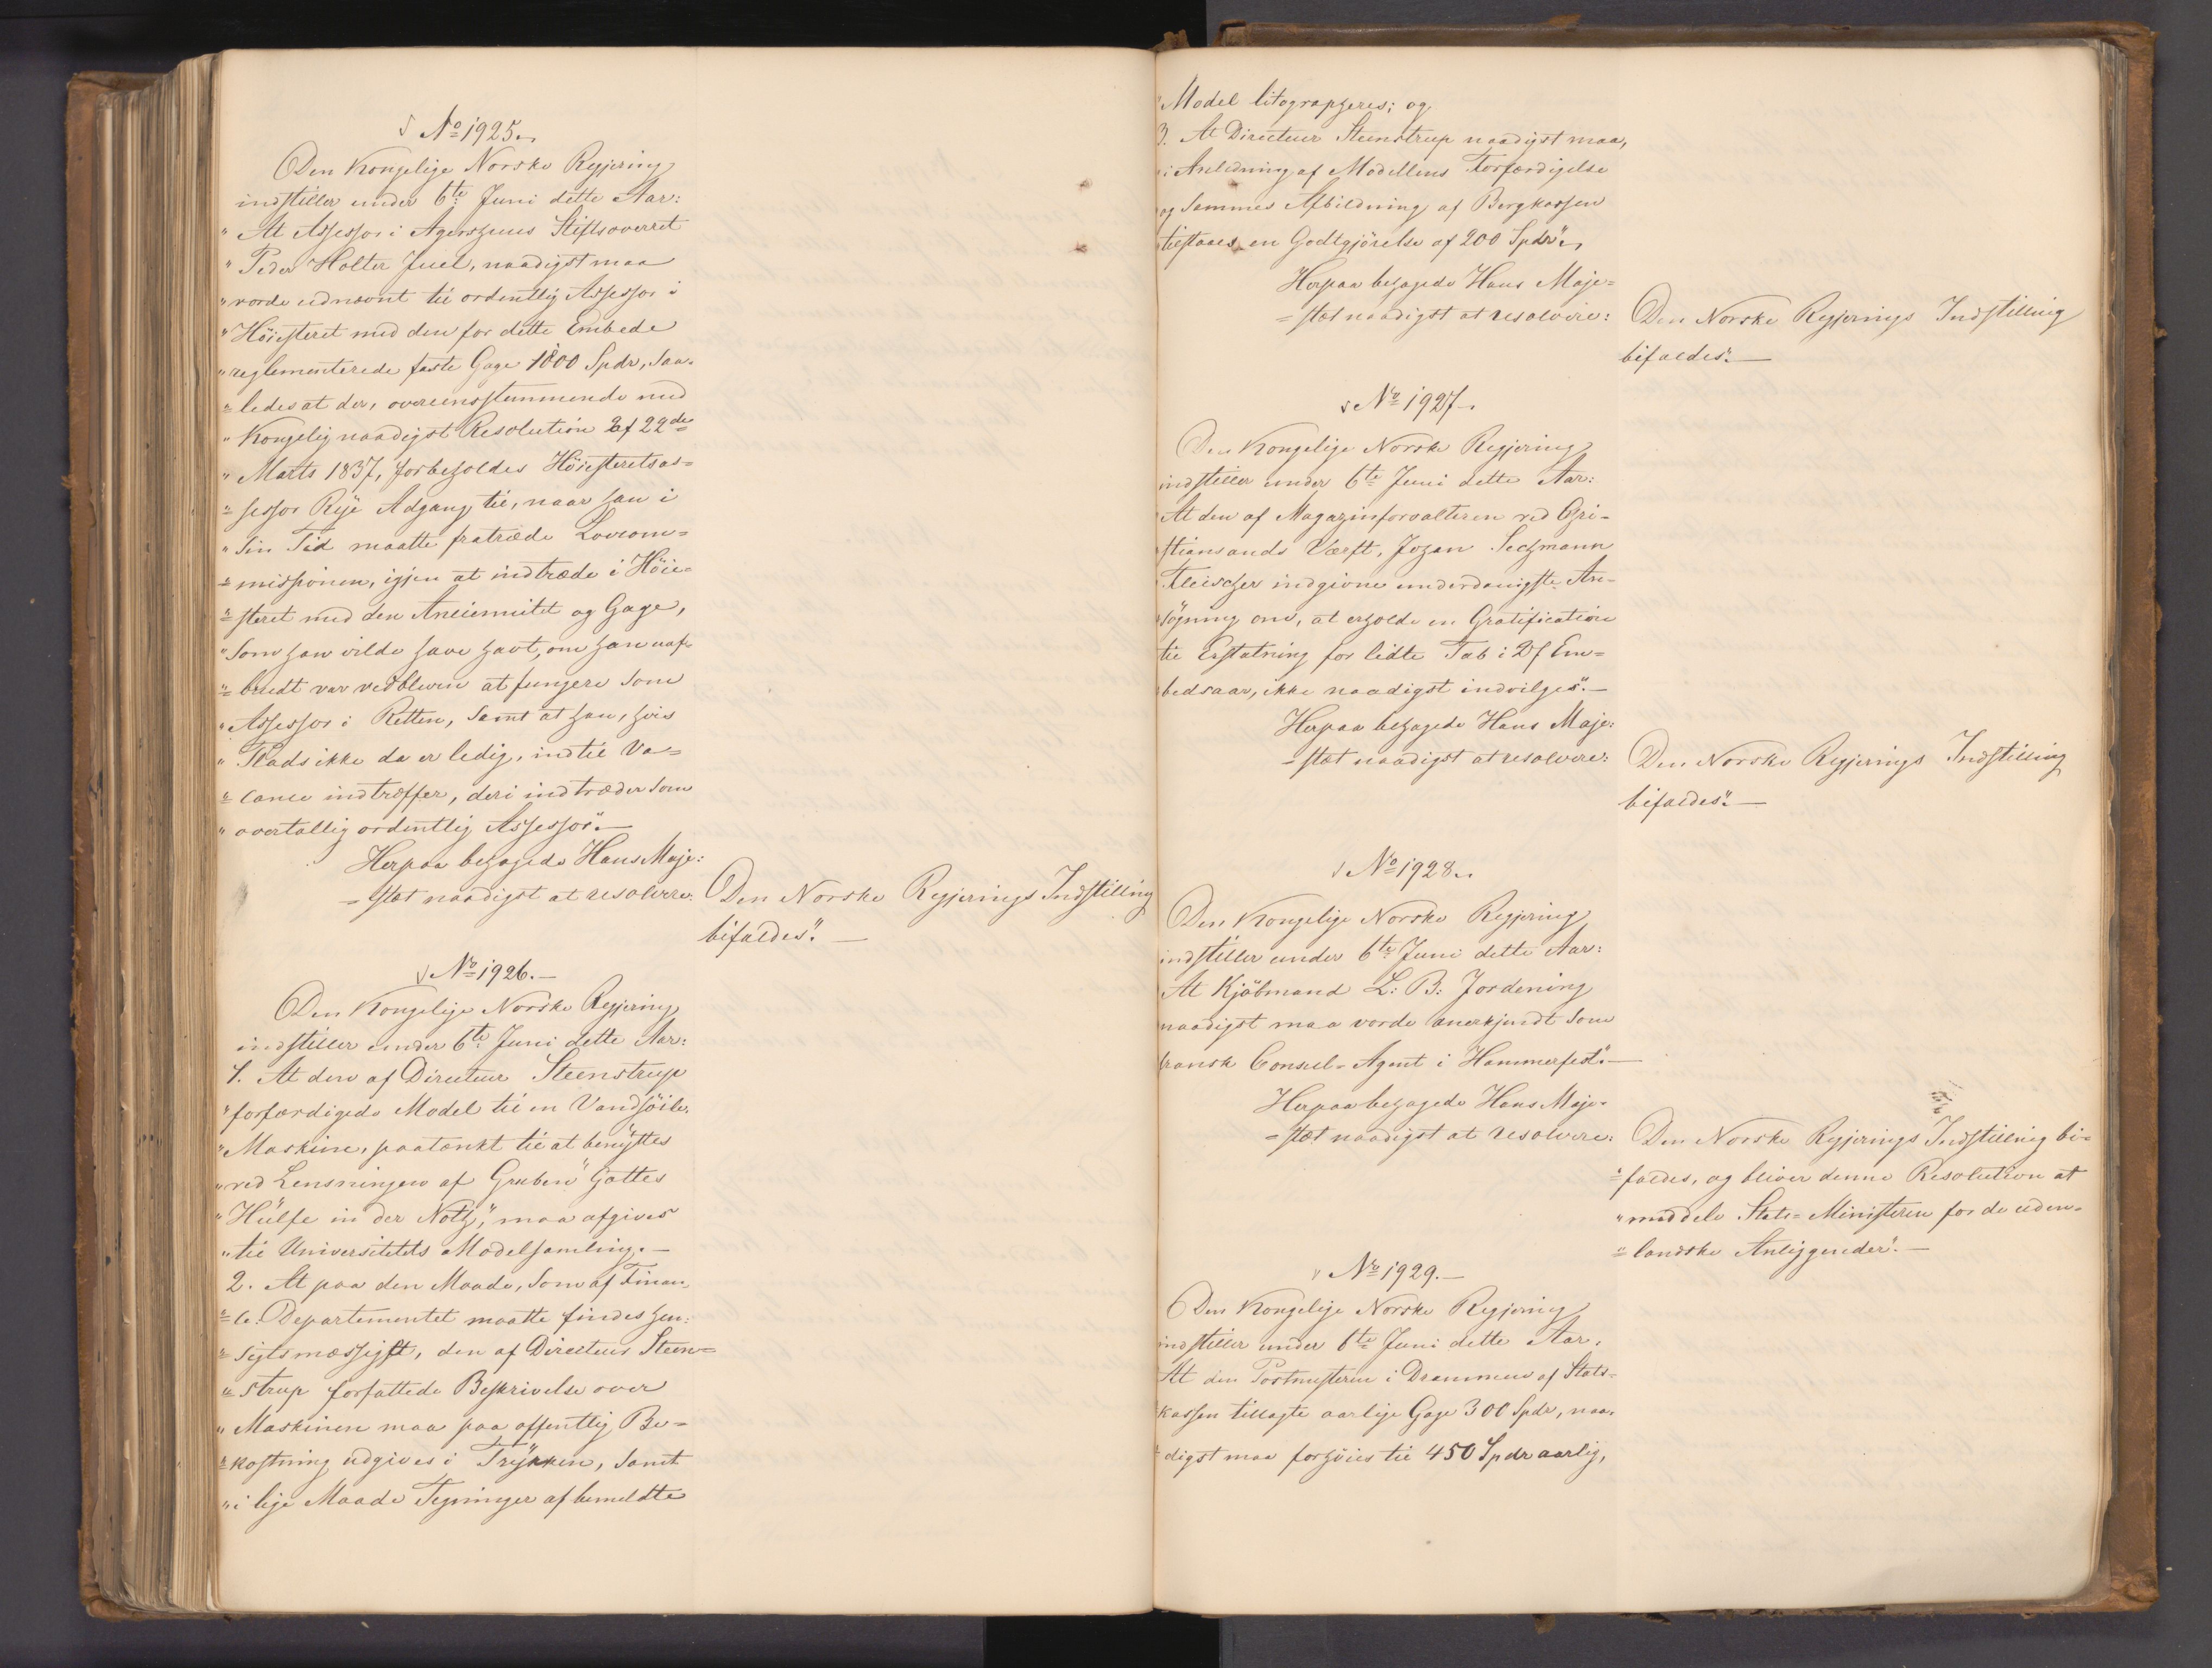 No 1925.
Den Kongelige Norske Regjering
indstiller under 6te Juni dette Aar:
" At Assessor i Agershuus Stiftsoverret
" Peder Holter Juel, naadigst maa
" vorde udnævnt til ordentlig Assessor i
" Höiesteret med den for dette Embede
" reglementerede faste Gage 1800 Spdr, saa-
"=ledes at der, overeensstemmende med
" Kongelig naadigst Resolution af 22de
" Marts 1837, forbeholdes Höiesteretsas-
"=sessor Rye Adgang til, naar han i
" Sin Tid maatte fratræde Lovcom-
"=missionen, igjen at indtræde i Höie-
"=steret med den Anciennitet og Gage,
" Som han vilde have havt, om han uaf-
"=brudt var vedbleven at fungere som
" Assessor i Retten, samt at han, hvis
" Plads ikke da er ledig, indtil Va-
"=cance indtræffer, deri indtræder som
" overtallig ordentlig Assessor".—
Herpaa behagede Hans Maje-
=stæt naadigst at resolvere: Den Norske Regjerings Indstilling
bifaldes".—
No 1926.—
Den Kongelige Norske Regjering
indstiller under 6te Juni dette Aar:
1. At den af Directeur Steenstrup
" forfærdigede Model til en Vandsöile-
" Maskine, paatænkt til at benyttes
" ved Lensningen af Gruben "Gottes
" Hülfe in der Noth", maa afgives
" til Universitetets Modelsamling.—
2. At paa den Maade, Som af Finan-
"=ce-Departementet maatte findes hen-
"=sigtsmæssigst, den af Directeur Steen-
"=strup forfattede Beskrivelse over
" Maskinen maa paa offentlig Be-
"=kostning udgives i Trykken, samt
" i lige Maade Tegninger af bemeldte
" Model litographeres; og
3. At Directeur Steenstrup naadigst maa,
" i Anledning af Modellens Forfærdigelse
og Sammes Afbildning af Bergkassen
tilstaaes en Godtgjörelse af 200 Spdr".
Herpaa behagede Hans Maje-
=stæt naadigst at resolvere: Den Norske Regjerings Indstilling
bifaldes".—
No 1927.
Den Kongelige Norske Regjering
indstiller under 6te Juni dette Aar:
At den af Magazinforvalteren ved Chri-
stiansands Værft, Johan Sechmann
Fleischer indgivne underdanigste An-
sögning om, at erholde en Gratification
til Erstatning for lidte Tab i Df Em-
bedsaar, ikke naadigst indvilges".—
Herpaa behagede Hans Maje-
=stæt naadigst at resolvere: Den Norske Regjerings Indstilling
bifaldes".—
No 1928.
Den Kongelige Norske Regjering
indstiller under 6te Juni dette Aar:
At Kjöbmand L: B: Jordening
naadigst maa vorde anerkjendt som
fransk Consul-Agent i Hammerfest".—
Herpaa behagede Hans Maje-
=stæt naadigst at resolvere: Den Norske Regjerings Indstilling bi-
"=faldes, og bliver denne Resolution at
" meddele Stats-Ministeren for de uden-
"=landske Anliggender".—
No 1929.—
Den Kongelige Norske Regjering
indstiller under 6te Juni dette Aar.
At den Postmesteren i Drammen af Stats-
kassen tillagte aarlige Gage 300 Spdr, naa-
digst maa forhöies til 450 Spdr aarlig,